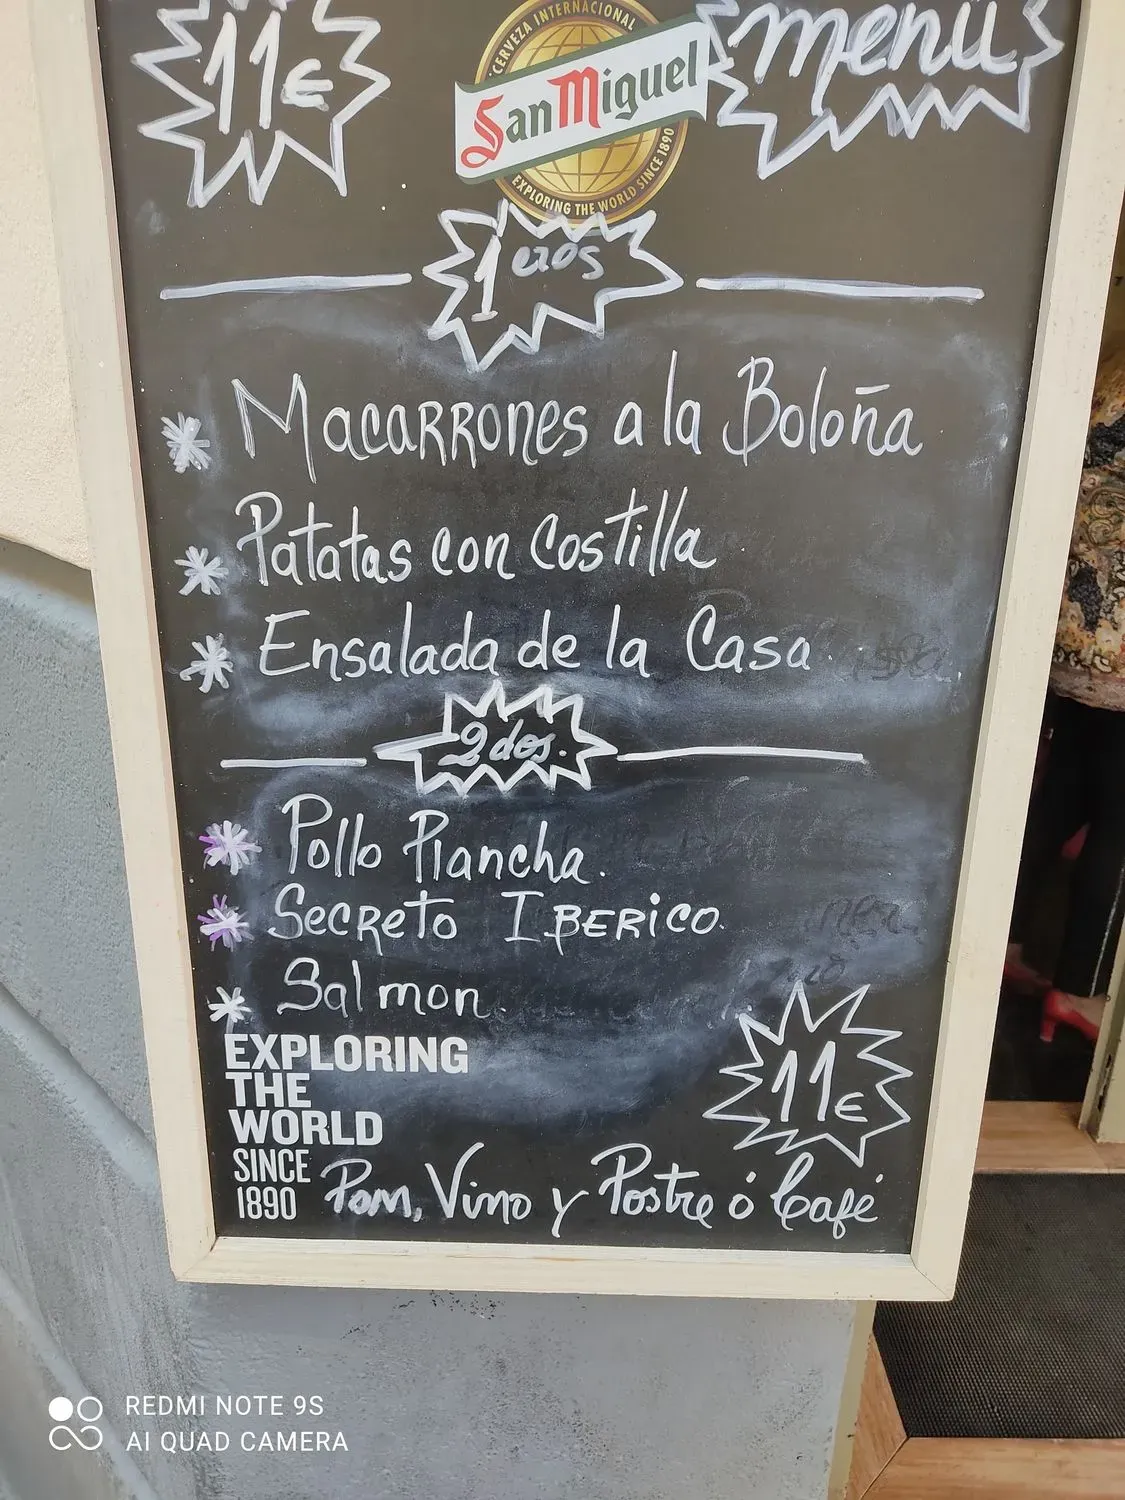 11€
CERVEZA INTERNACIONAL
San Miguel
EXPLORING THE WORLD SINCE 1890
menú
1eros
* Macarrones a la Boloña
* Patatas con Costilla
* Ensalada de la Casa.
2dos.
* Pollo Plancha.
* Secreto Iberico.
* Salmon.
EXPLORING
THE
WORLD
SINCE
1890
11€
Pan, Vino y Postre ó Café
REDMI NOTE 9S
AI QUAD CAMERA